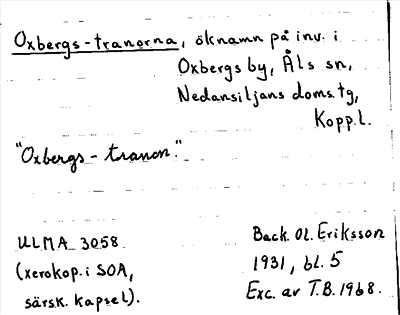 Oxbergs-tranorna, öknamn på inv. i
Oxbergs by, Åls sn,
Nedansiljans doms.tg,
Kopp.l.
"Oxbergs-tranon."
ULMA 3058.
(xerokop. i SOA,
särsk. kapsel).
Back. Ol. Eriksson
1931, bl. 5
Exc. av T.B. 1968.